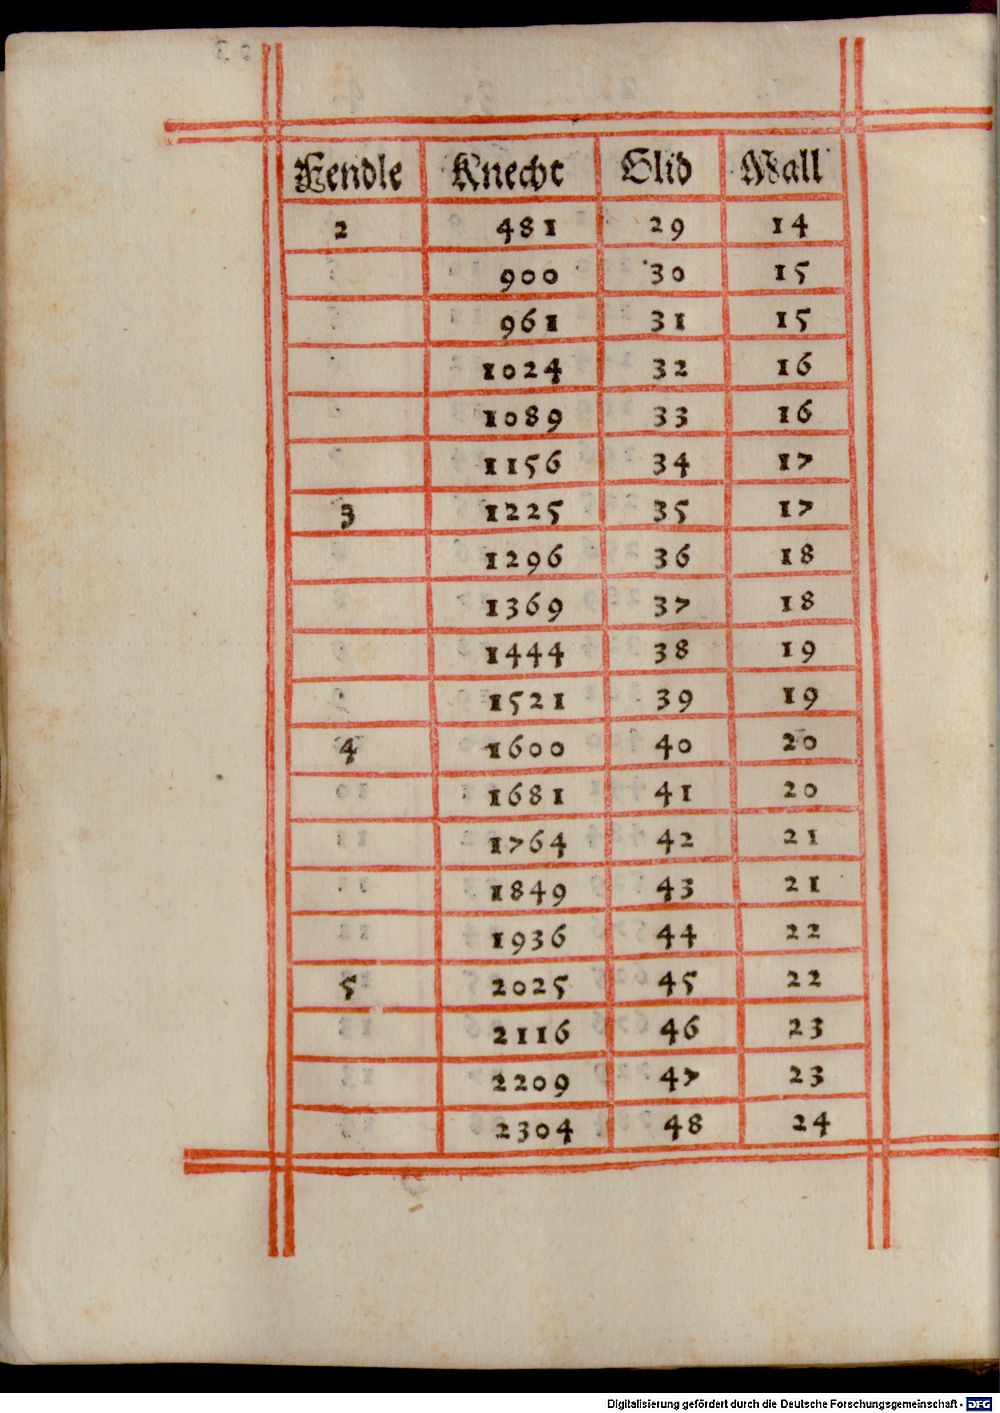 Fendle Knecht Glid Wall
2 481 29 14
900 30 15
961 31 15
1024 32 16
1089 33 16
1156 34 17
3 1225 35 17
1296 36 18
1369 37 18
1444 38 19
1521 39 19
4 1600 40 20
1681 41 20
1764 42 21
1849 43 21
1936 44 22
5 2025 45 22
2116 46 23
2209 47 23
2304 48 24
Digitalisierung gefördert durch die Deutsche Forschungsgemeinschaft - DFG